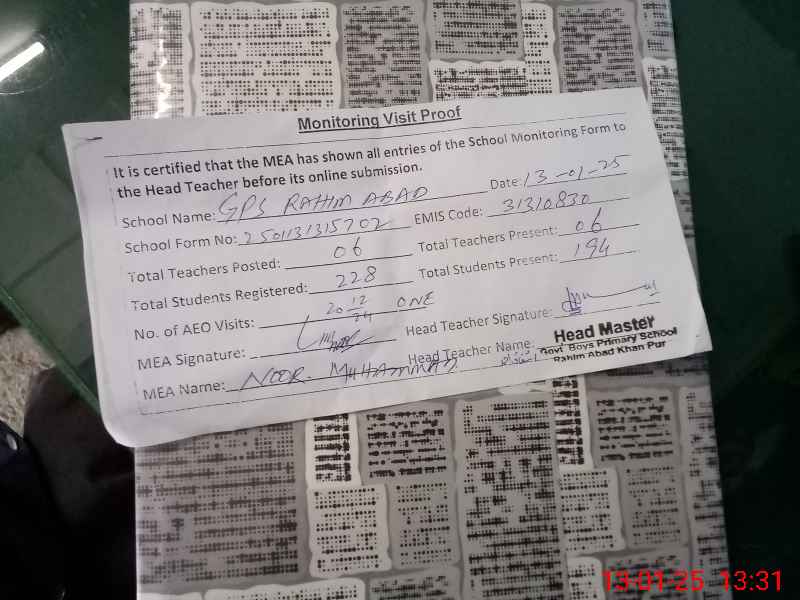 Monitoring Visit Proof
It is certified that the MEA has shown all entries of the School Monitoring Form to
the Head Teacher before its online submission.
School Name: GPS RAHIM ABAD Date: 13-01-25
School Form No: 2501131315702 EMIS Code: 31310830
Total Teachers Posted: 06 Total Teachers Present: 06
Total Students Registered: 228 Total Students Present: 194
No. of AEO Visits: 20 12 24 ONE
MEA Signature: Head Teacher Signature:
MEA Name: NOOR MUHAMMAD Head Teacher Name:
Head Master
Govt Boys Primary School
Rahim Abad Khan Pur
13-01-25 13:31